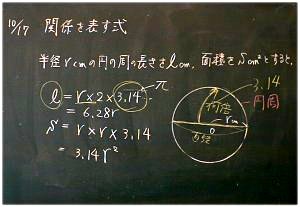 10/17 関係を表す式
半径rcmの円の周の長さをlcm, 面積をScm²とすると,
l = r × 2 × 3.14 π
= 6.28r
S = r × r × 3.14
= 3.14r²
3.14
円周
何倍
rcm
O
直径